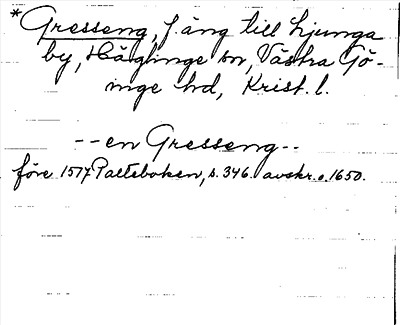 *Gresseng, f. äng till Ljunga
by, Häglinge sn, Västra Gö-
inge hd, Krist. l.
--en Gresseng--
före 1517 Palteboken, s. 346. avskr. o. 1650.